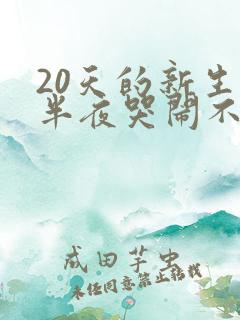 20天的新生
半夜哭闹不
咸田芋虫
未经同意禁止转载